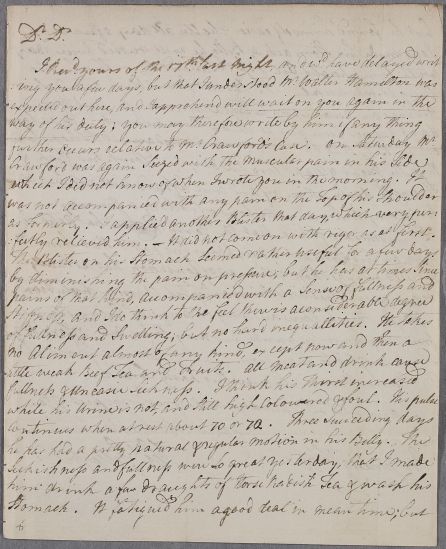 Dr. Dr.
I rec'd yours of the 17th last night, and w'd have delayed writ
ing you a few days, but that I understood Mr. Walter Hamilton was
expected out here, and apprehend will wait on you again in the
way of his duty; you may therefore write by him if any thing
further occurs relative to Mr. Crawford's Case. On Saturday Mr.
Crawford was again Seized with the Muscular pain in his Side
which I did not know of when I wrote you in the morning. It
was not accompanied with any pain on the Top of his Shoulder
as formerly. I applied another Blister that day which very per
fectly relieved him; It did not come on with rigor as at first.
The Blister on his Stomach seemed rather useful for a few days
by diminishing the pain on pressure; but he has at times Since
pains of that kind, accompanied with a Sense of fullness and
Stiffness, and I do think to the feel there is a considerable degree
of fulness and Swelling, but no hard inequalities. He takes
no Aliment almost of any kind, except now and then a
little weak beef Tea and Fruits. all meat and drink cause
fullness & uneasie Sickness. I think his Thirst increased
while his Urine is not, and still high Coloured & foul. His pulse
continues when at rest about 70 or 72. Three succeeding days
he has had a pretty natural & regular motion in his Belly. The
Sickishness and fullness were so great yesterday, that I made
him drink a few draughts of Horse Radish Tea & wash his
Stomach. It fatigued him a good deal in mean time; but